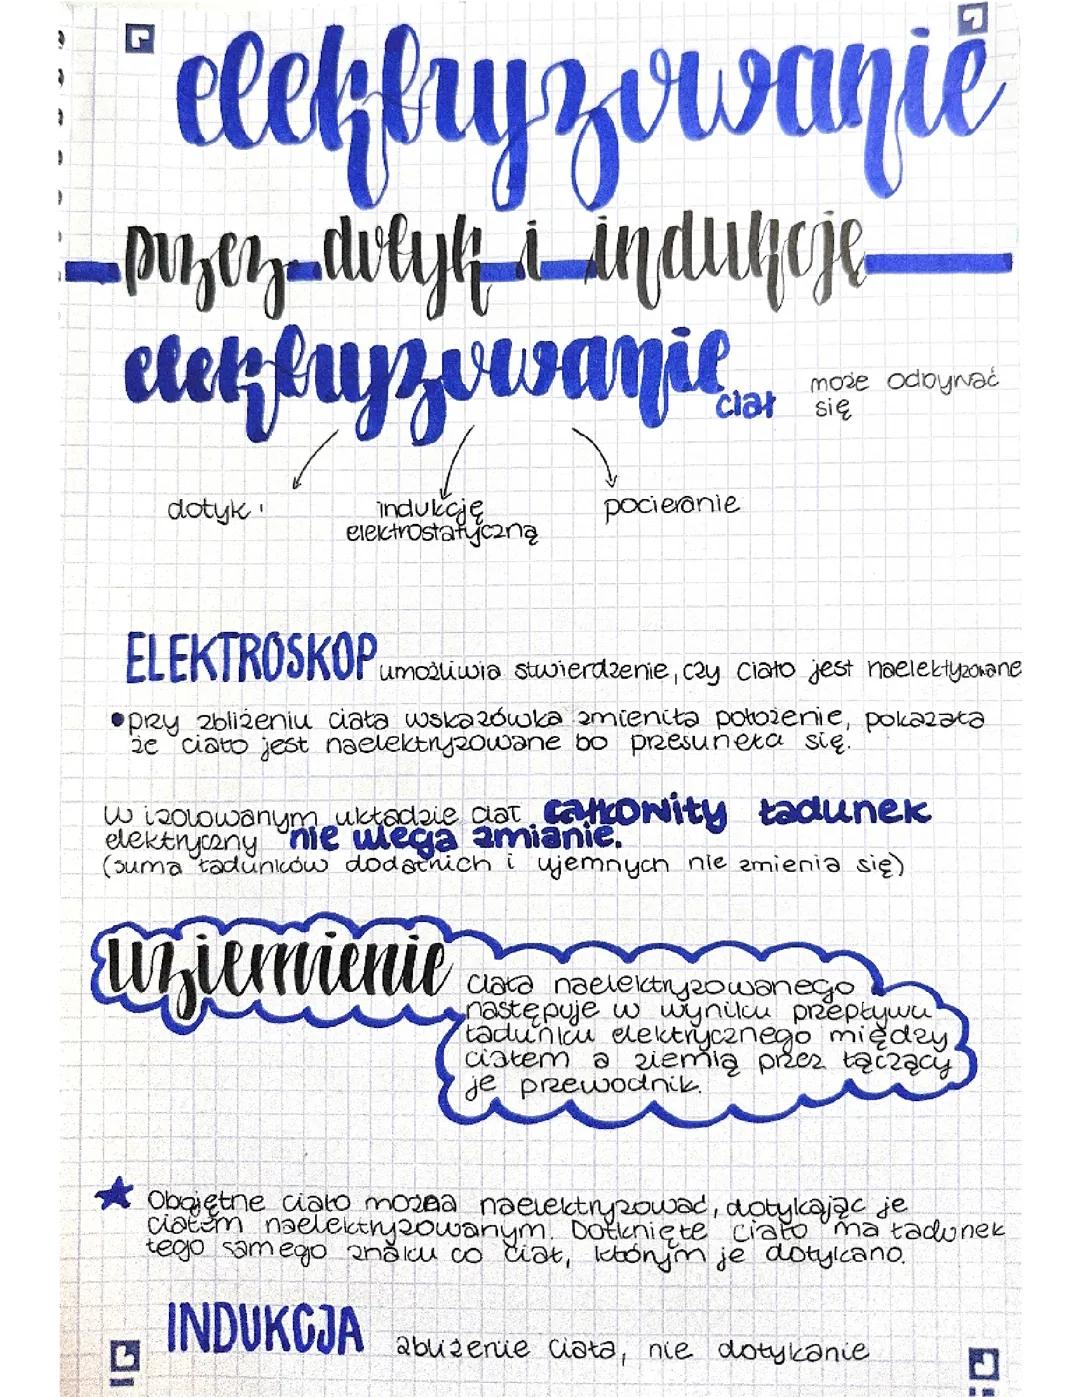 elektryzowanie
przez dotyk i indukcję
elektryzowanie ciał może odbywać
się
dotyk indukcję pocieranie
elektrostatyczną
ELEKTROSKOP umożliwia stwierdzenie, czy ciało jest naelektyzowane
• przy zbliżeniu ciała wskazówka zmieniła położenie, pokazała
że ciało jest naelektryzowane bo przesuneła się.
W izolowanym układzie ciał całkowity ładunek
elektryczny nie ulega zmianie.
(suma ładunków dodatnich i ujemnych nie zmienia się)
uziemienie ciała naelektryzowanego
następuje w wyniku przepływu
ładunku elektrycznego między
ciałem a ziemią przez łączący
je przewodnik.
★ Obojętne ciało można naelektryzować, dotykając je
ciałem naelektryzowanym. Dotknięte ciało ma ładunek
tego samego znaku co ciał, którym je dotykano.
INDUKCJA zbliżenie ciała, nie dotykanie